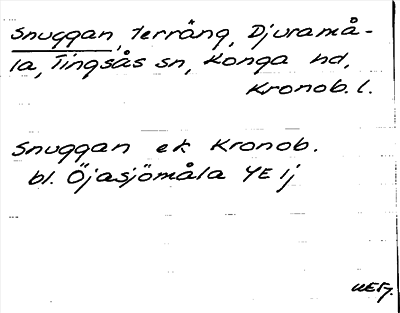 Snuggan, terräng, Djuramå-
la, Tingsås sn, Konga hd,
Kronob. l.
Snuggan ek Kronob.
bl. Öjasjömåla YE ij